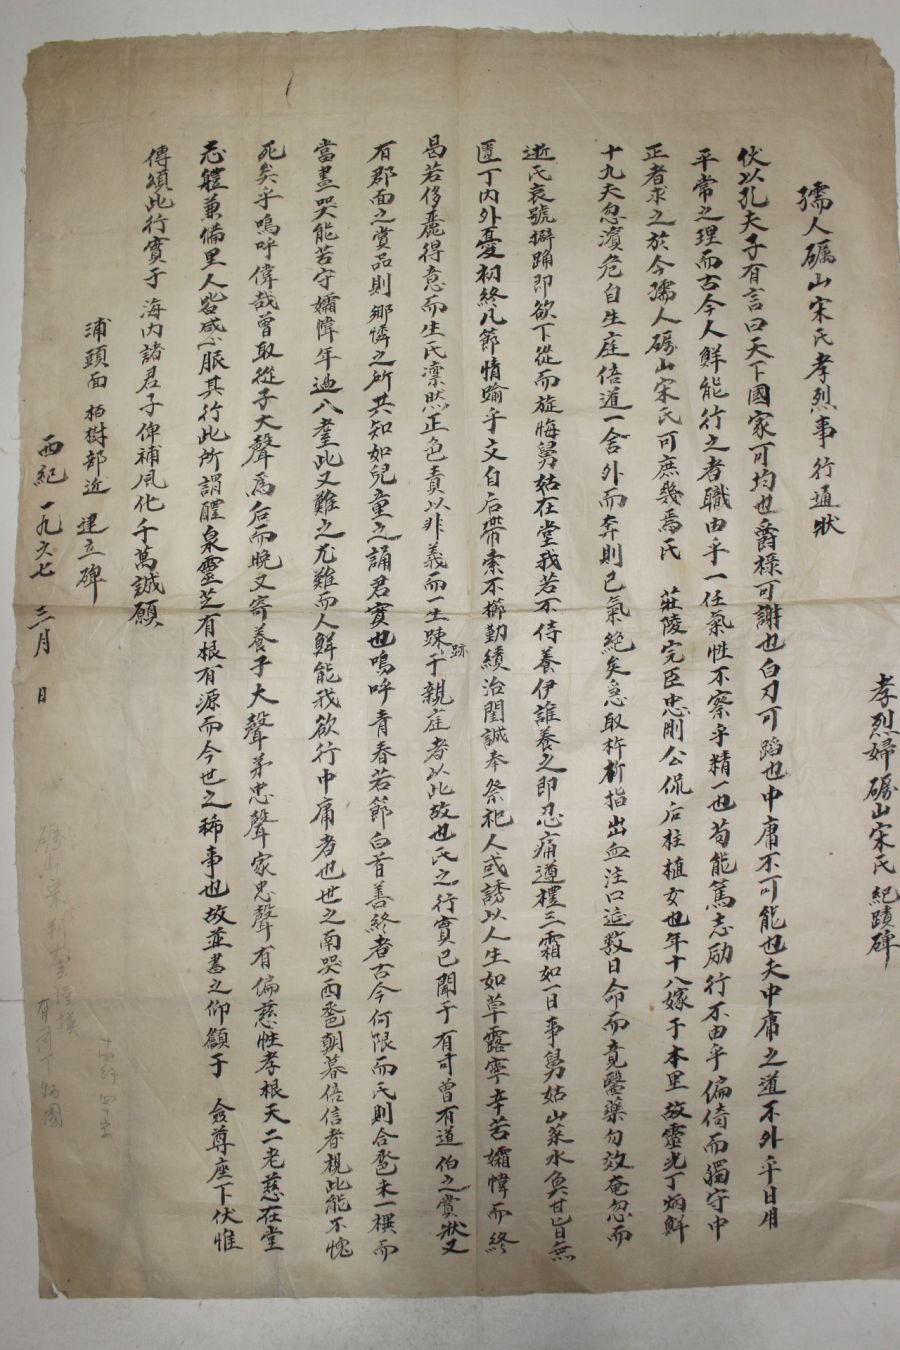 孝烈婦礪山宋氏紀蹟碑
孺人礪山宋氏孝烈事行通狀
伏以孔夫子有言曰天下國家可均也爵祿可謝也白刃可蹈也中庸不可能也夫中庸之道不外乎日用
平常之理而古今人鮮能行之者職由乎一任氣性不察乎精一也苟能篤志励行不由乎偏倚而獨守中
正者求之於今孺人礪山宋氏可庶幾焉氏 莊陵完臣忠剛公侃后柱植女也年十八嫁于本里故靈光丁炳鮮
十九夫忽濱危自生庭倍道一舍外而奔則已氣絶矣急取杵斫指出血注口延数日命而竟醫藥勿效奄忽而
逝氏哀號擗踊即欲下從而旋悔舅姑在堂我若不侍養伊誰養之即忍痛遵禮三霜如一日事舅姑山菜水魚甘旨無
匱丁內外憂初終凡節情踰乎文自后帶索不櫛勤績治閨誠奉祭祀人或誘以人生如草露寧辛苦孀幃而終
曷若侈麗得意而生氏凜然正色責以非義而一生踈跡于親庭者以此故也氏之行實已聞于有司曾有道伯之賞狀又
有郡面之賞品則鄉隣之所共知如兒童之誦君實也嗚呼青春若節白首善終者古今何限而氏則合巹未一禩而
當晝哭能苦守孀幃年過八耋此又難之尤難而人鮮能我欲行中庸者也世之南哭西巹朝暮倍信者視此能不愧
死矣乎嗚呼偉哉曾取從子大聲爲后而晚又寄養子大聲弟忠聲家忠聲有偏慈性孝根天二老慈在堂
志軆兼備里人咎咸心服其行此所謂醴泉靈芝有根有源而今世之稀事也故並書之仰籲于 僉尊座下伏惟
傳頌此行實于 海內諸君子俾補風化千萬誠願
浦頭面 栢樹部近 建立碑
西紀一九六七 三月 日
礪山宋